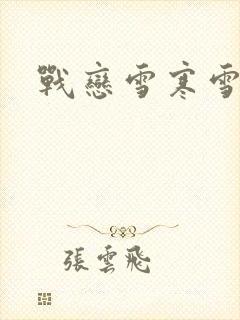 戰戀雪寒雪
張雲飛